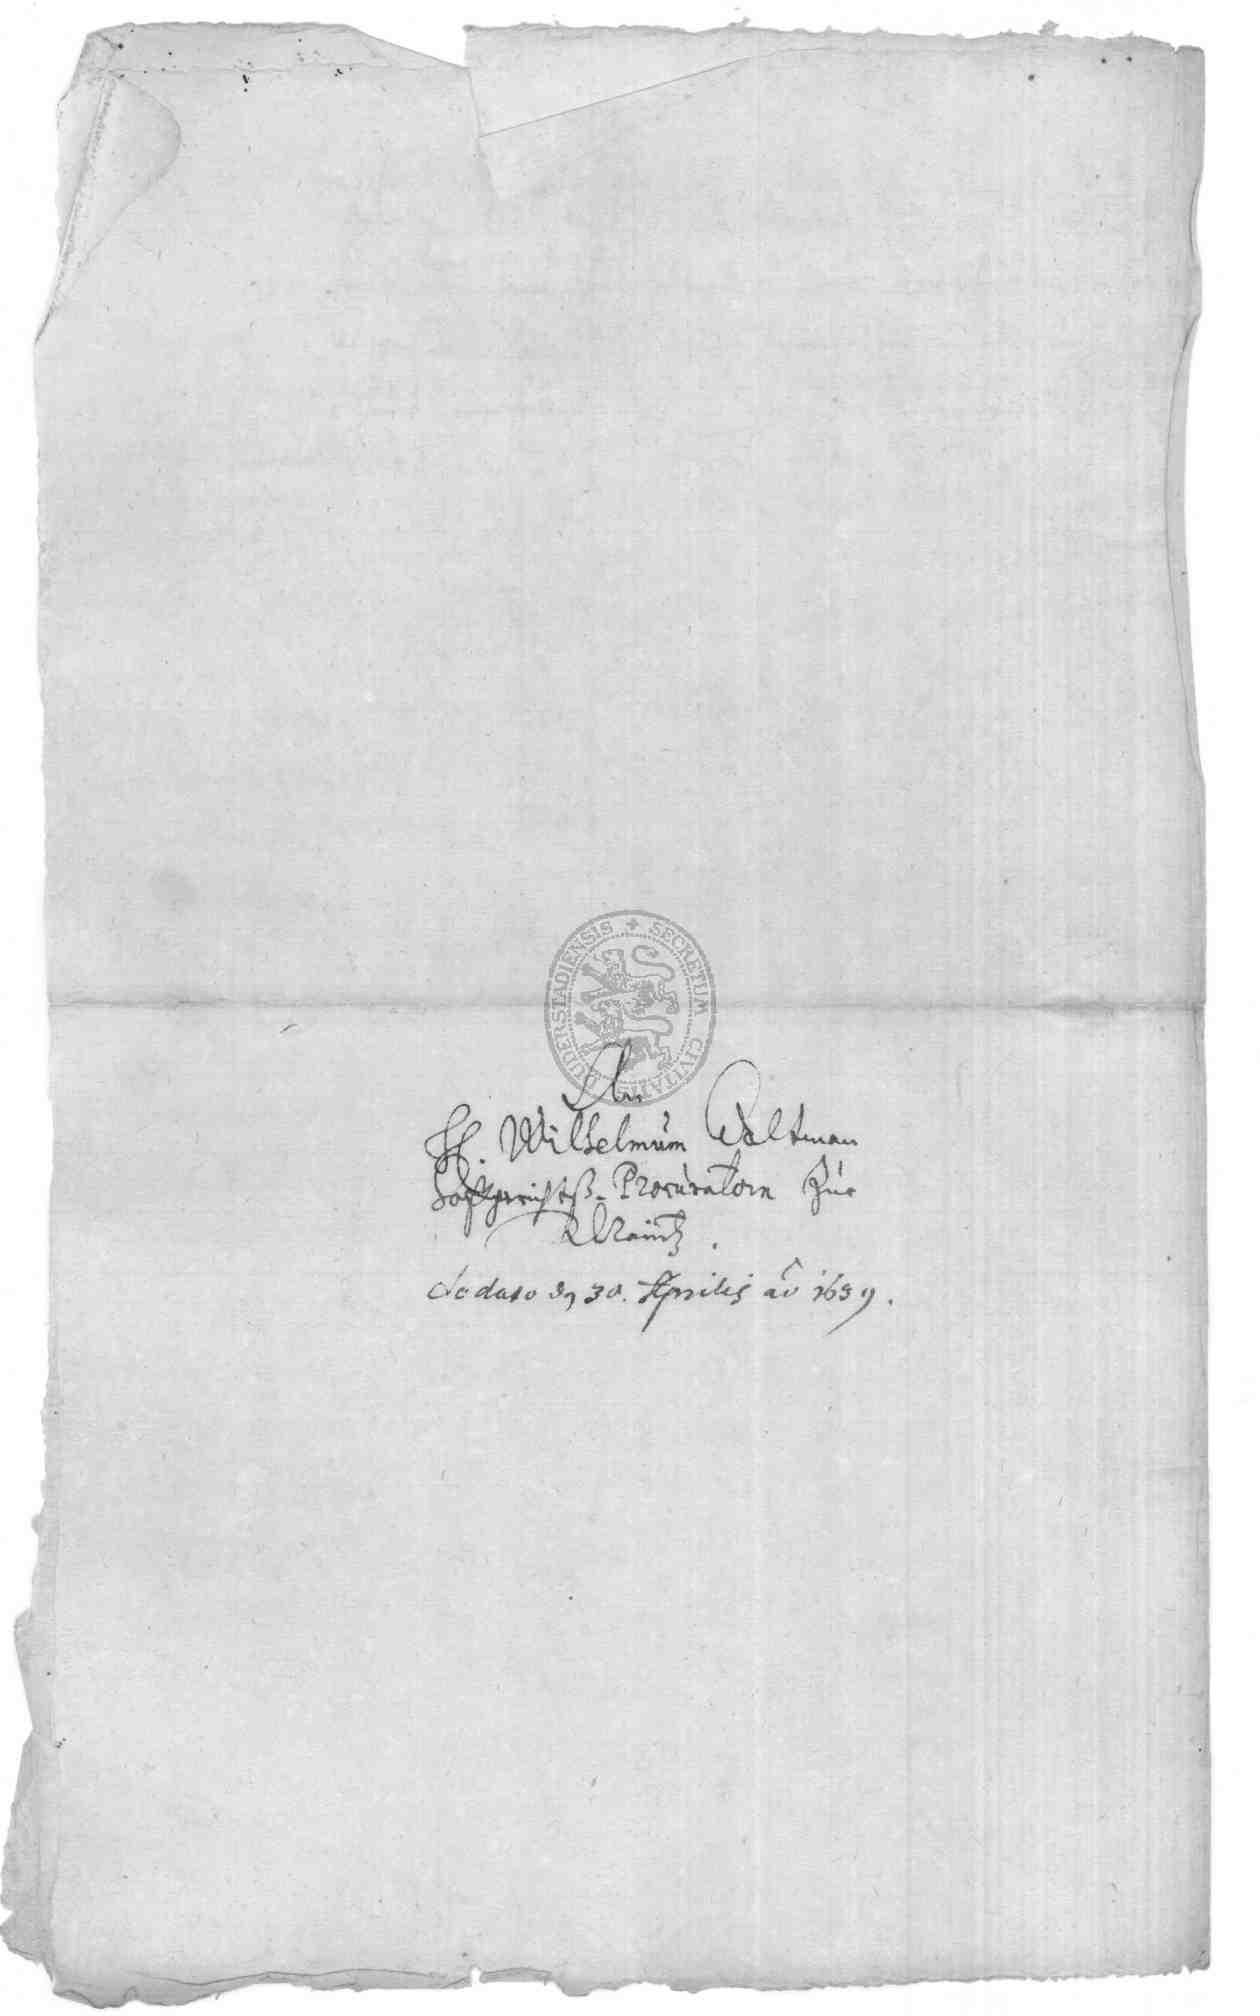 SECRETUM CIVITATIS DUDERSTADIENSIS
An
H. Wilhelmum Waltman
Hoffgerichtß-Procuratorn zur
Maintz.
de dato dn 30. Aprilis ao 1639.